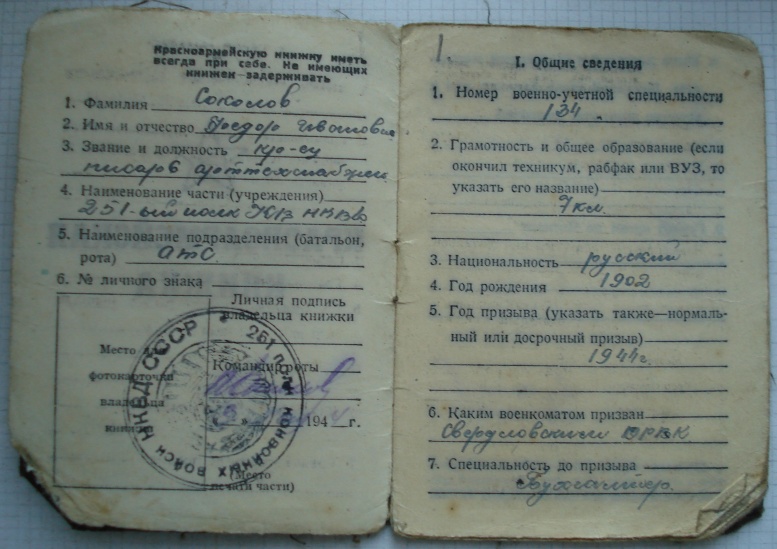 Красноармейскую книжку иметь
всегда при себе. Не имеющих
книжек—задерживать
1. Фамилия Соколов
2. Имя и отчество Федор Иванович
3. Звание и должность кр-ец
писарь арттехснабжен
4. Наименование части (учреждения)
251-ый полк КВ НКВД
5. Наименование подразделения (батальон,
рота) атс
6. № личного знака
Личная подпись
владельца книжки
Место
фотокарточки
владельца
Командир роты
194 г.
(Место
печати части)
251 полк конвойных войск НКВД СССР
1.
I. Общие сведения
1. Номер военно-учетной специальности
134.
2. Грамотность и общее образование (если
окончил техникум, рабфак или ВУЗ, то
указать его название)
7 кл.
3. Национальность русский
4. Год рождения 1902
5. Год призыва (указать также—нормаль-
ный или досрочный призыв)
1944г.
6. Каким военкоматом призван
Свердловским ОРВК
7. Специальность до призыва
Бухгалтер.